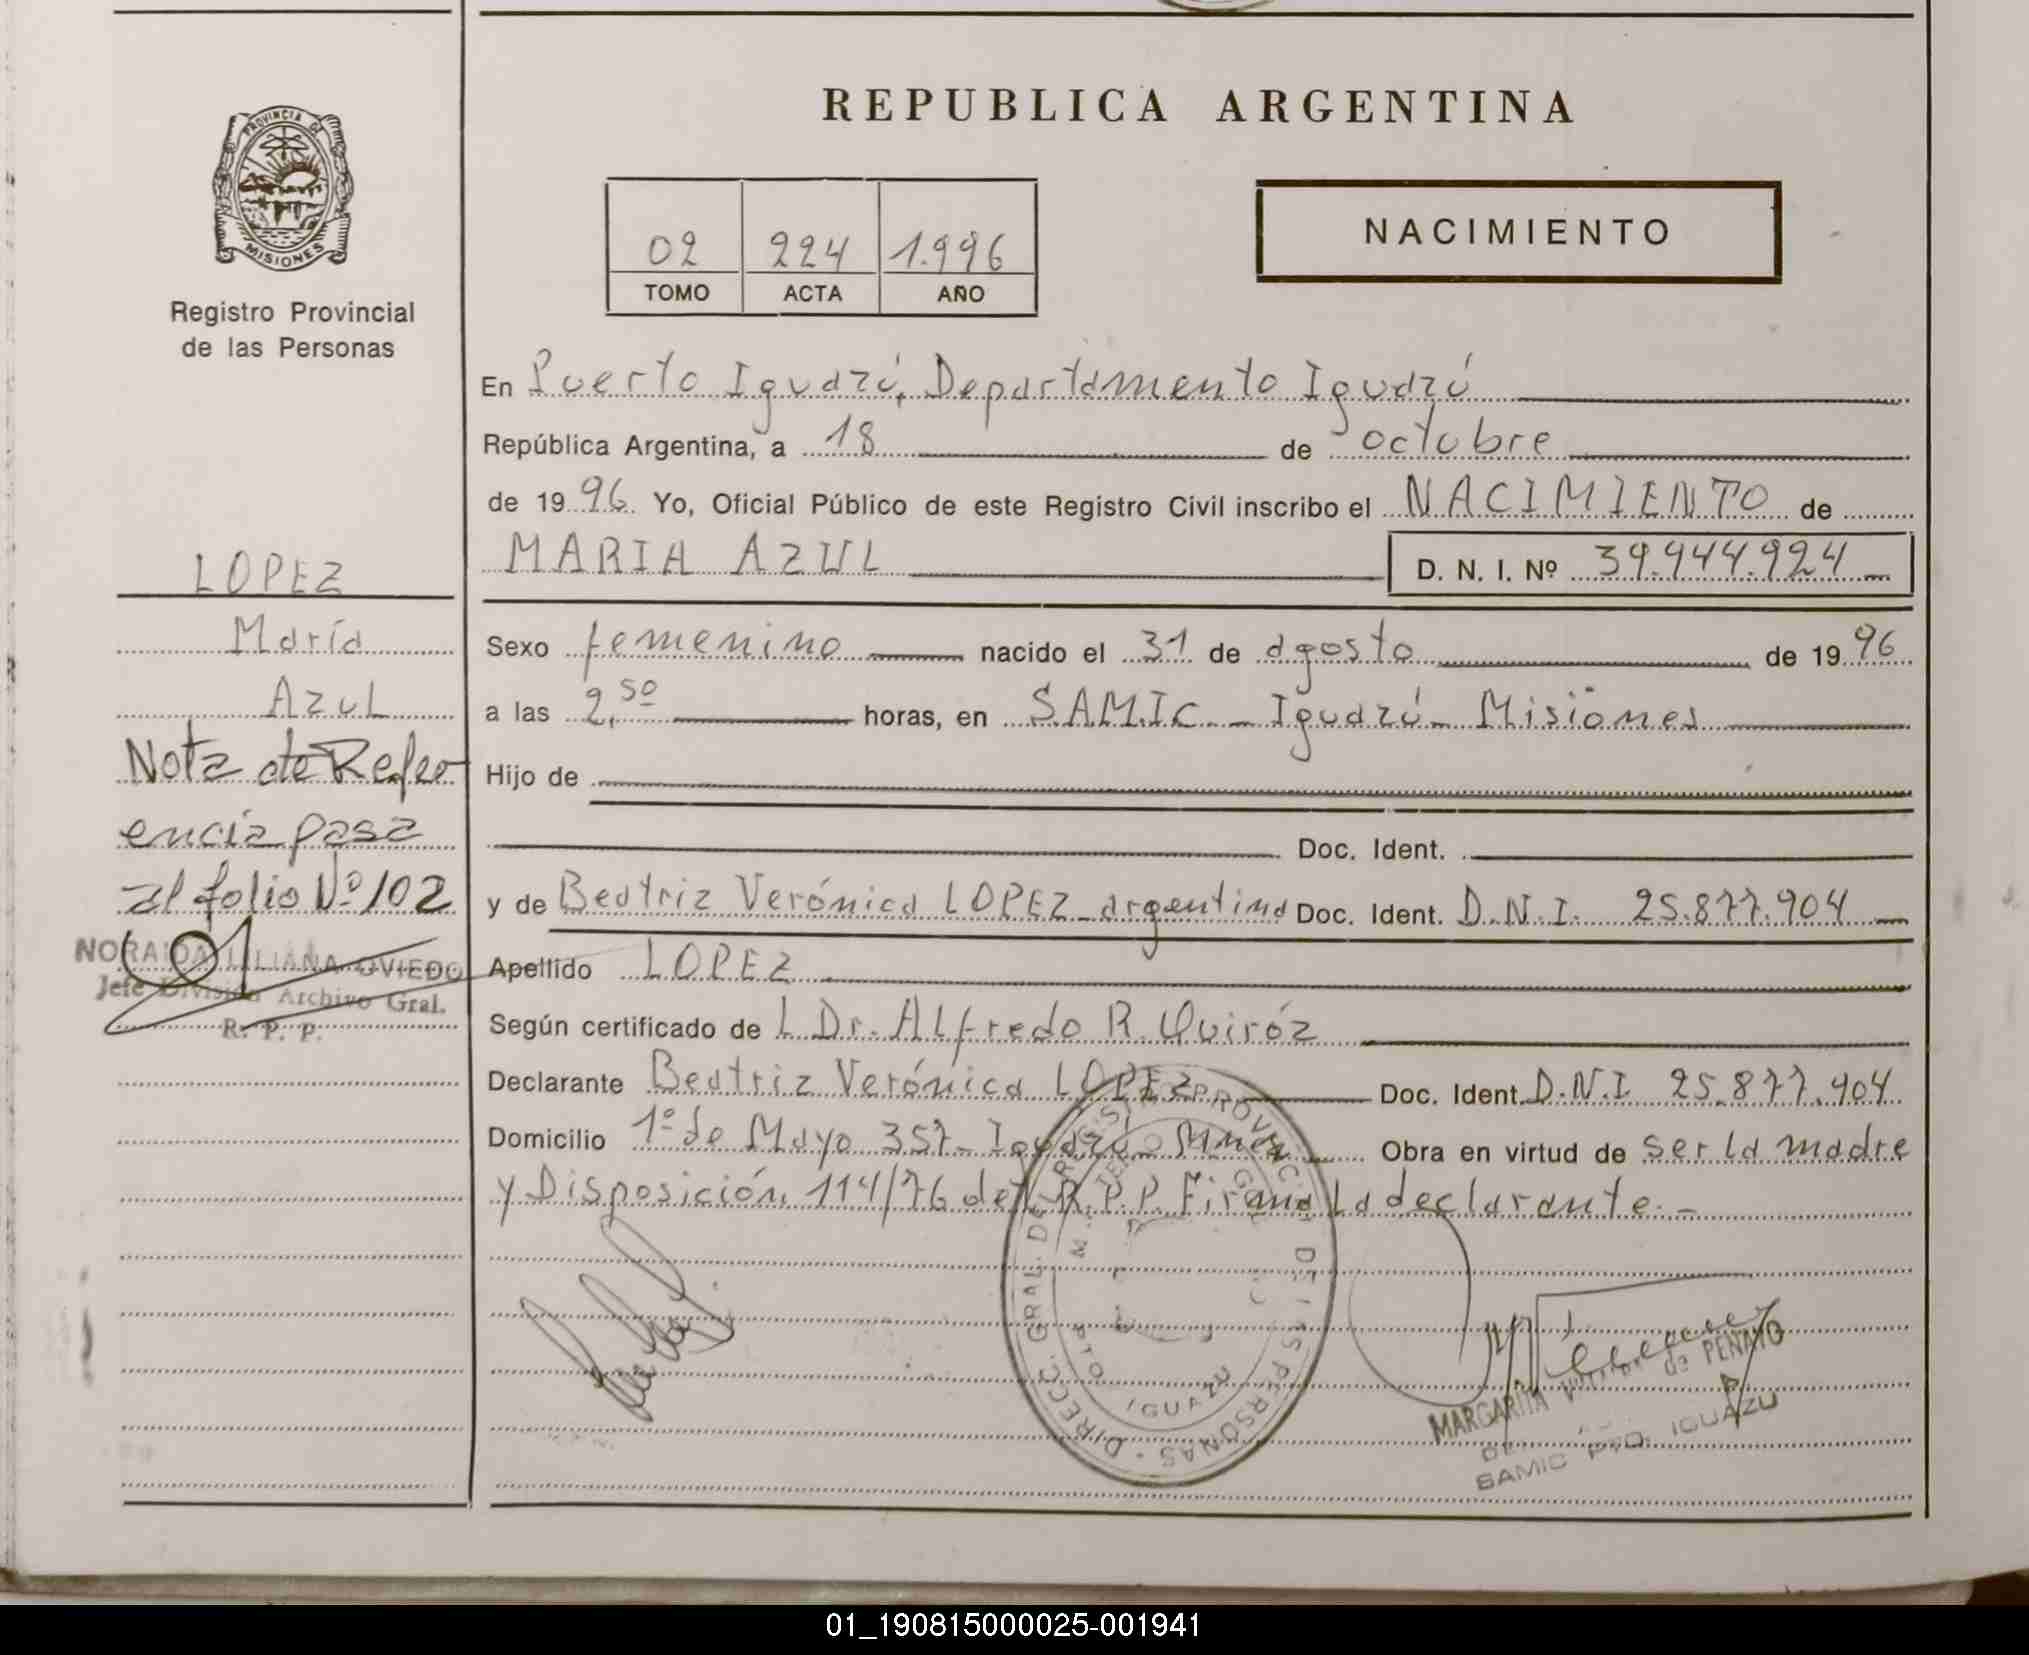 REPUBLICA ARGENTINA
PROVINCIA DE
MISIONES
Registro Provincial
de las Personas
02 224 1.996
TOMO ACTA AÑO
NACIMIENTO
En Puerto Iguazú, Departamento Iguazú
República Argentina, a 18 de octubre
de 1996 Yo, Oficial Público de este Registro Civil inscribo el NACIMIENTO de
MARIA AZUL D. N. I. Nº 39.944.924
LOPEZ
María
Azul
Nota de Refer
encia pasa
al folio Nº 102
NORAIDA LILIANA OVIEDO
Jefe División Archivo Gral.
R. P. P.
Sexo femenino nacido el 31 de agosto de 1996
a las 2,50 horas, en SAMIC - Iguazú - Misiones
Hijo de
Doc. Ident.
y de Beatriz Verónica LOPEZ - argentina Doc. Ident. D.N.I. 25.877.904
Apellido LOPEZ
Según certificado del Dr. Alfredo R. Quiróz
Declarante Beatriz Verónica LOPEZ Doc. Ident. D.N.I 25.877.904
Domicilio 1º de Mayo 357 - Iguazú - Mnes Obra en virtud de ser la madre
y Disposición 114/76 del R.P.P. Firma la declarante. -
DIRECC. GRAL. DEL REGISTRO PROVINCIAL DE LAS PERSONAS
IGUAZU
MARGARITA de PENAYO
SAMIC PTO. IGUAZU
01_190815000025-001941